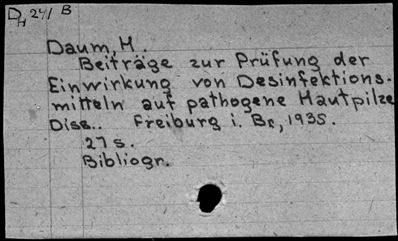 DH 241 B
Daum, H.
Beiträge zur Prüfung der
Einwirkung von Desinfektions-
mitteln auf pathogene Hautpilze
Diss.. Freiburg i. Br, 1935.
27 s.
Bibliogr.